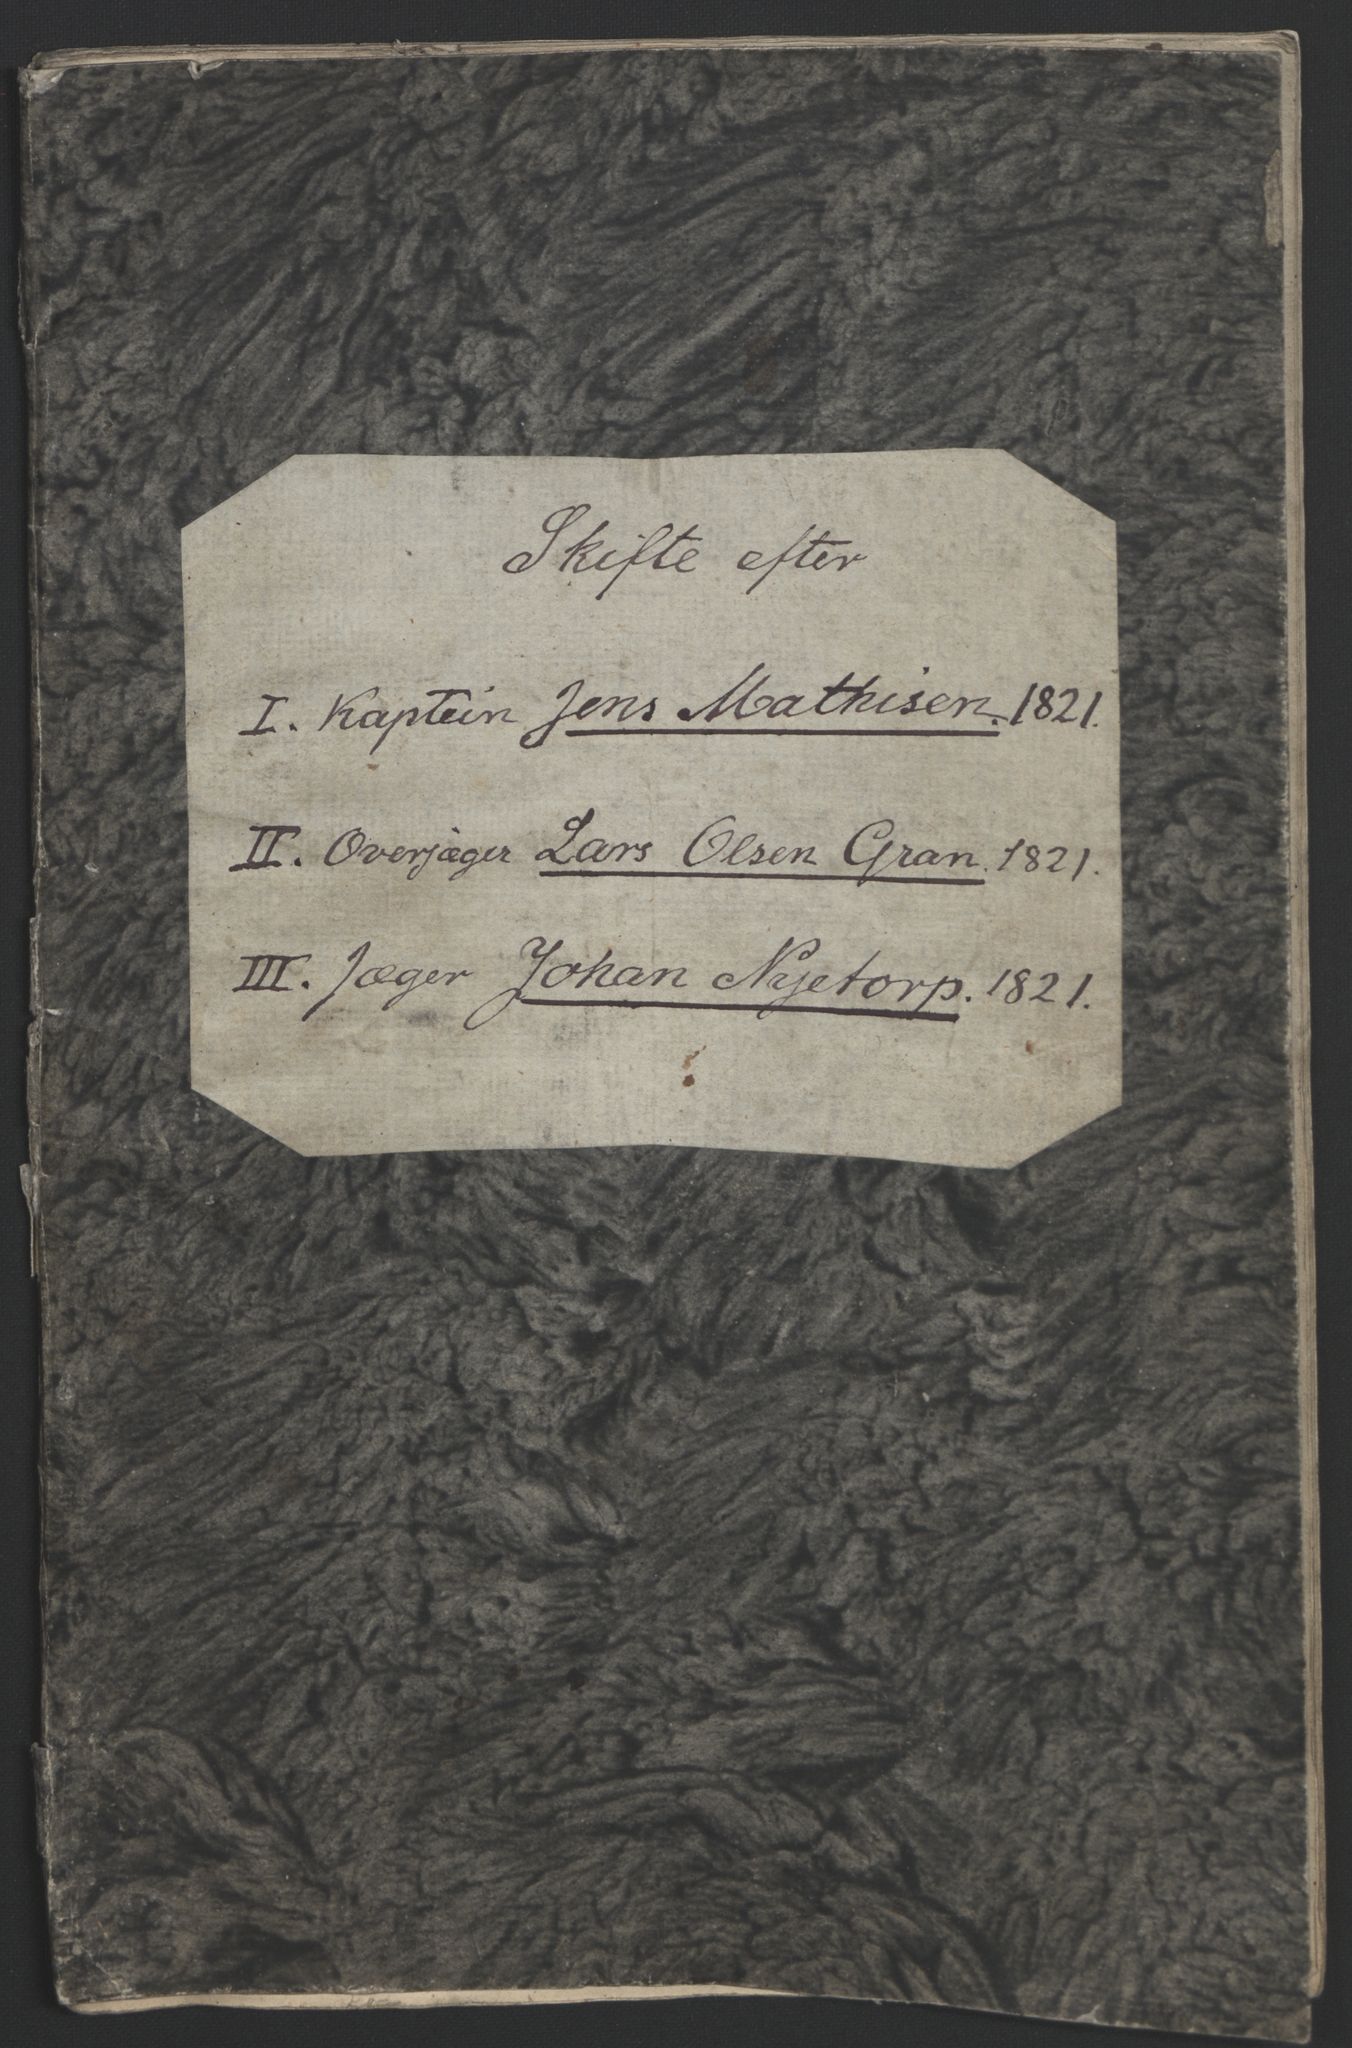 Skifte efter
I. Kaptein Jens Mathisen. 1821.
II. Overjæger Lars Olsen Gran. 1821.
III. Jæger Johan Nyetorp. 1821.